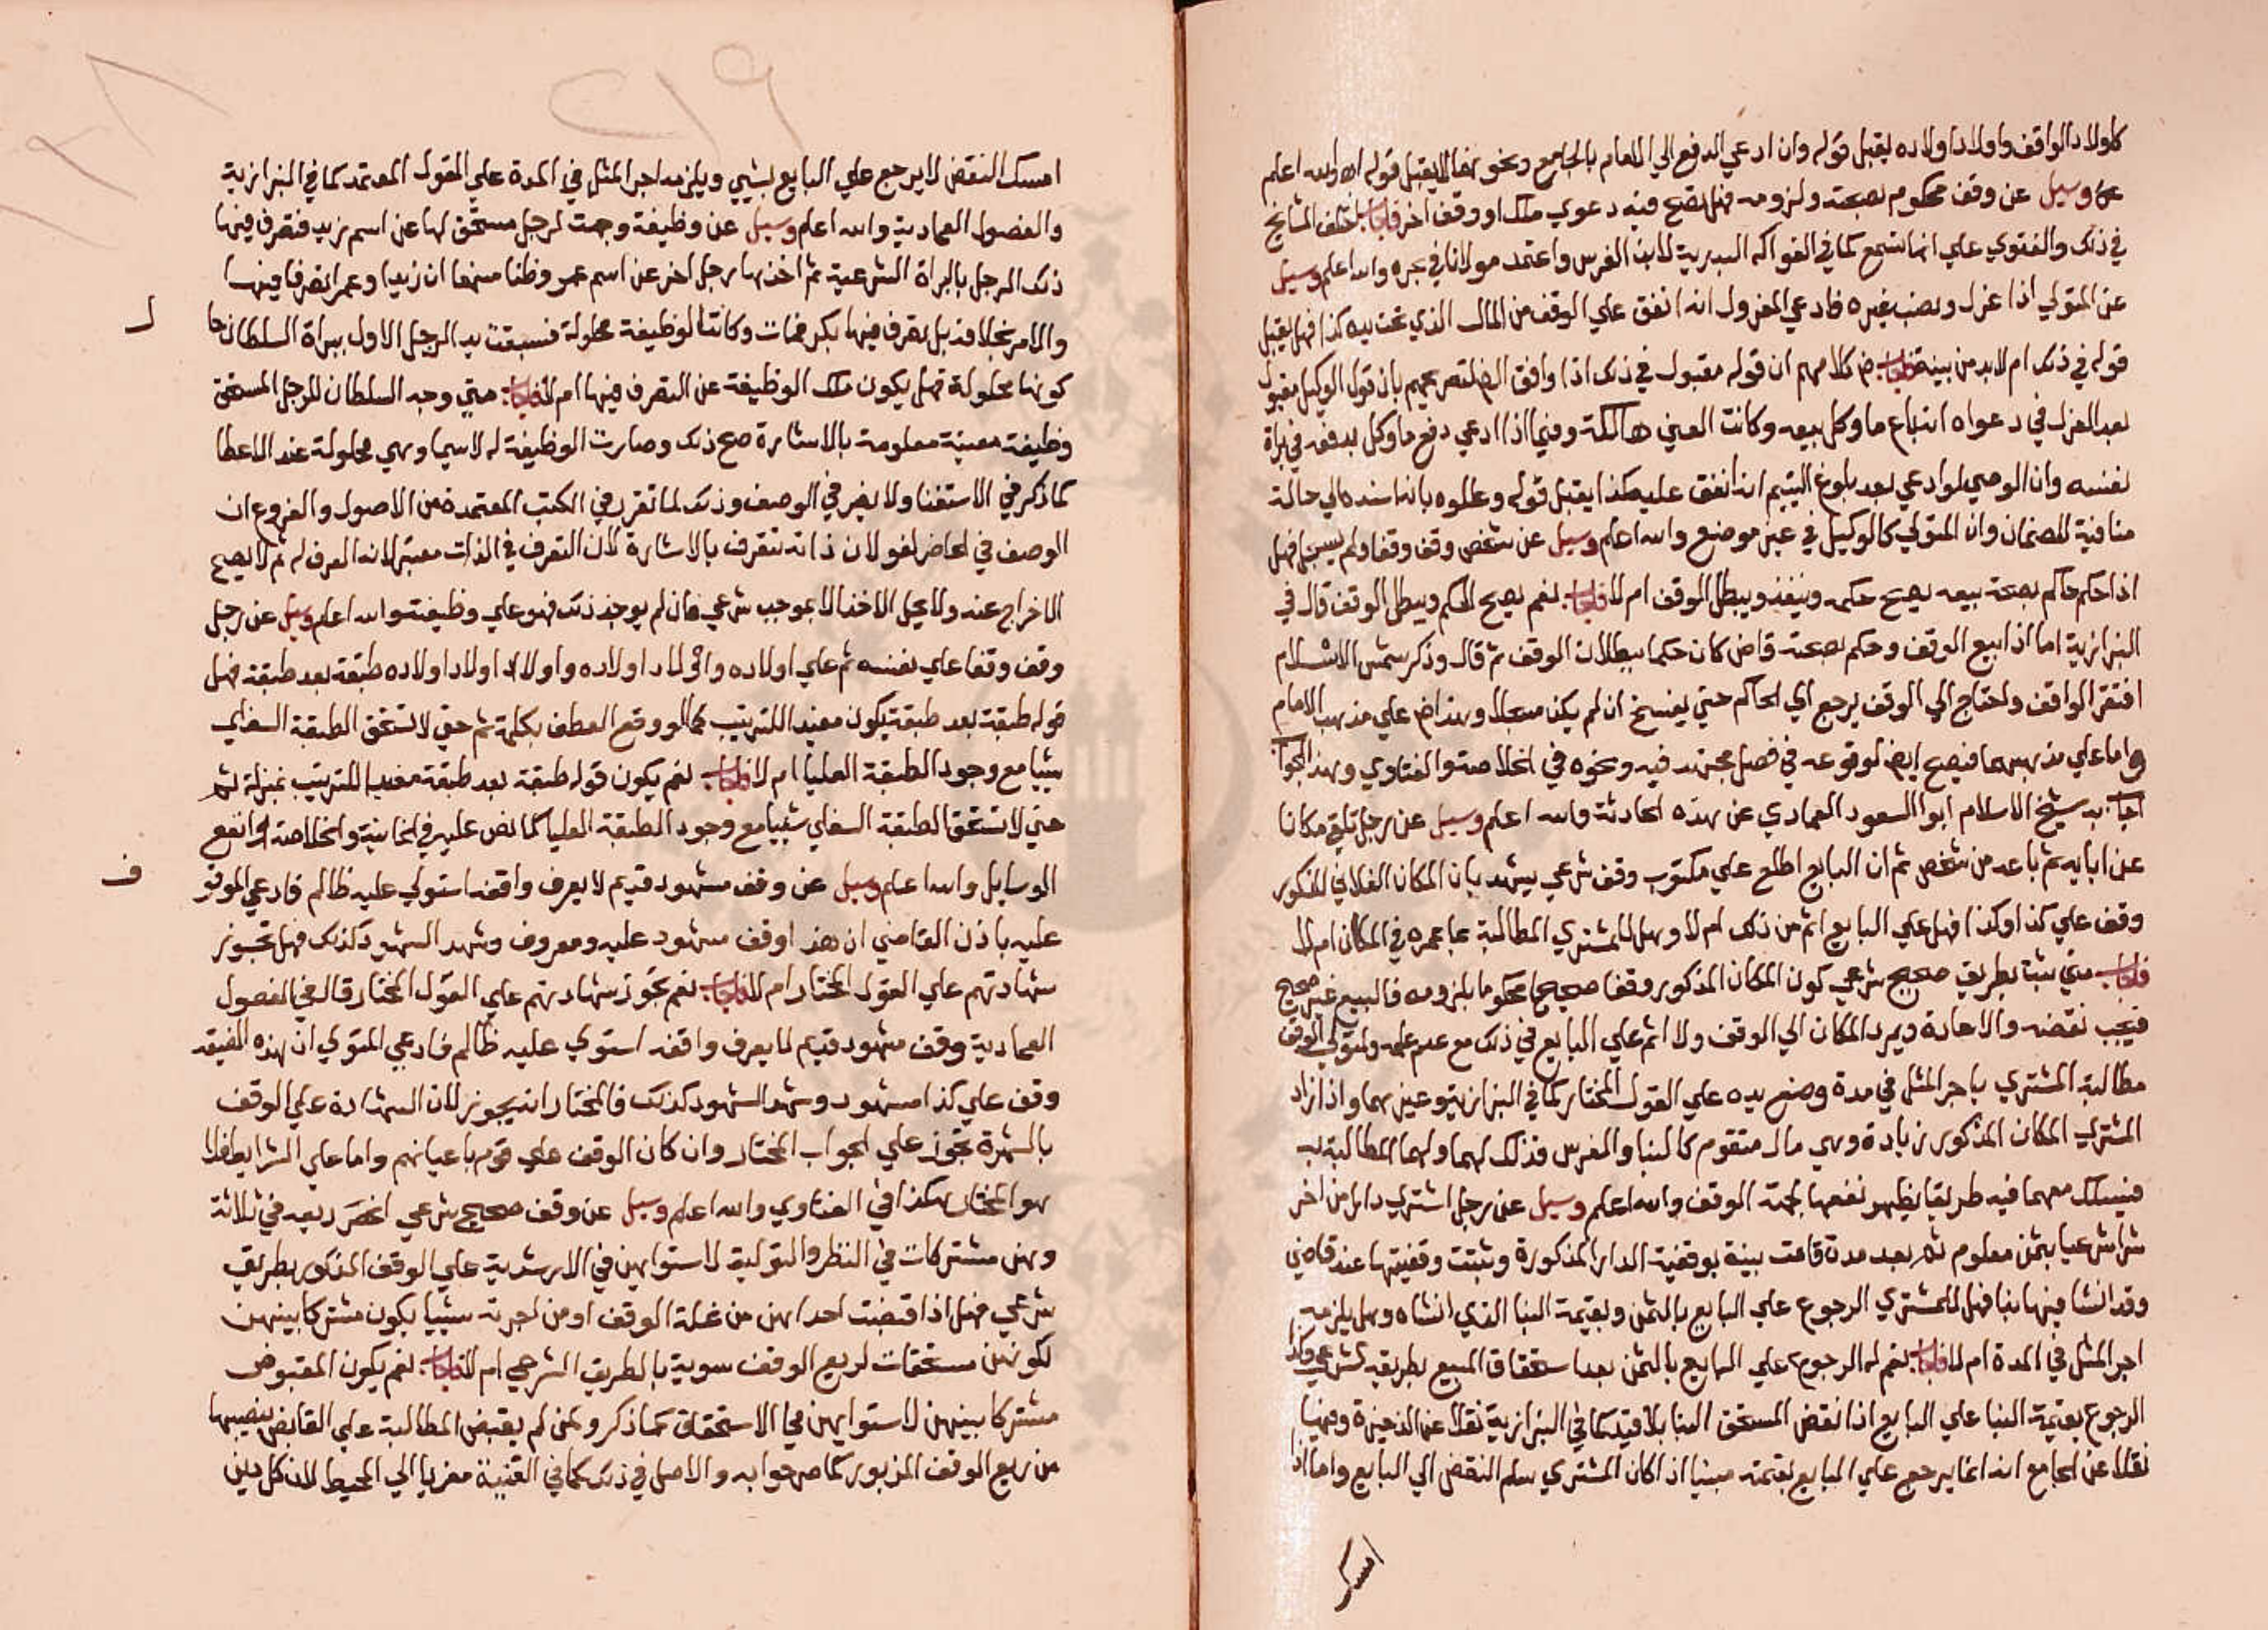 كاولاد الواقف واولاد اولاده يقبل قوله وان ادعي الدفع الي الامام بالجامع ونحوهما لا يقبل قوله اه والله اعلم
وسيل عن وقف محكوم بصحته ولزومه فهل تصح فيه دعوي ملك او وقف اخر فاجاب اختلف المشايخ
في ذلك والفتوي علي انها تسمع كما في الفواكه البدرية لابن الغرس واعتمد مولانا في بحره والله اعلم وسيل
عن المتولي اذا عزل ونصب غيره فادعي المعزول انه انفق علي الوقف من المال الذي تحت يده كذا فهل يقبل
قوله في ذلك ام لابد من بينة فاجاب كلامهم ان قوله مقبول في ذلك اذا وافق الظاهر لتصريحهم بان قول الوكيل مقبول
بعد العزل في دعواه انه باع ما وكل ببيعه وكانت العين هالكة وفيما اذا ادعي دفع ما وكل بدفعه في براة
نفسه وان الوصي لو ادعي بعد بلوغ اليتيم انه انفق عليه كذا يقبل قوله وعللوه بانه اسنده الي حالة
منافية للضمان وان المتولي كالوكيل في غير موضع والله اعلم وسيل عن شخص وقف وقفا ولم يسجل فهل
اذا حكم حاكم بصحة بيعه يصح حكمه وينفذ ويبطل الوقف ام لا فاجاب نعم يصح الحكم ويبطل الوقف قال في
البزازية اما اذا بيع الوقف وحكم بصحته قاض كان حكما ببطلان الوقف ثم قال وذكر شمس الاسلام
افتقر الواقف واحتاج الي الوقف يرجع الي الحاكم حتي يفسخ ان لم يكن مسجلا وهذا ض علي مذهب الامام
واما علي مذهبهما فيصح ايض لوقوعه في فصل مجتهد فيه ونحوه في الخلاصة والفتاوي وبهذا الجواب
اجاب به شيخ الاسلام ابو السعود العمادي عن هذه الحادثة والله اعلم وسيل عن رجل تلقي مكانا
عن ابايه ثم باعه من شخص ثم ان البايع اطلع علي مكتوب وقف شرعي يشهد بان المكان الفلاني المذكور
وقف علي كذا وكذا فهل علي البايع اثم من ذلك ام لا وهل للمشتري المطالبة بما عمره في المكان ام لا
فاجاب متي ثبت بطريق صحيح شرعي كون المكان المذكور وقفا صحيحا محكوما بلزومه فالبيع غير صحيح
فيجب نقضه والاعادة ويرد المكان الي الوقف ولا اثم علي البايع في ذلك مع عدم علمه ولمتولي الوقف
مطالبة المشتري باجر المثل في مدة وضع يده علي القول المختار كما في البزازية وغيرهما واذا زاد
المشتري المكان المذكور زيادة وهي مال متقوم كالبنا والغرس فذلك لهما ولهما المطالبة به
فيسلك معهما فيه طريقا يظهر نفعها لجهة الوقف والله اعلم وسيل عن رجل اشتري دارا من اخر
شرا شرعيا بثمن معلوم ثم بعد مدة قامت بينة بوقفية الدار المذكورة وثبتت وقفيتها عند قاضي
وقد انشا فيها بنا فهل للمشتري الرجوع علي البايع بالثمن وبقيمة البنا الذي انشاه وهل يلزمه
اجر المثل في المدة ام لا فاجاب نعم له الرجوع علي البايع بالثمن بعد استحقاق المبيع بطريقه الشرعي وكذا
الرجوع بقيمة البنا علي البايع اذا نقض المستحق البنا بلا قيد كما في البزازية نقلا عن الذخيرة وفيها
نقلا عن الجامع انه انما يرجع علي البايع بقيمته مبنيا اذا كان المشتري سلم النقض الي البايع واما اذا
امسك
امسك النقض لا يرجع علي البايع بشيي ويلزمه اجر المثل في المدة علي القول المعتمد كما في البزازية
والفصول العمادية والله اعلم وسيل عن وظيفة وجهت لرجل مستحق لها عن اسم زيد فتصرف فيها
ذلك الرجل بالبراة الشرعية ثم اخذها رجل اخر عن اسم عمرو ظنا منهما ان زيدا وعمرا تصرفا فيها
والامر بخلافه بل تصرف فيها بكر فمات وكانت الوظيفة محلولة فسبقت يد الرجل الاول ببراة السلطان حا
كونها محلولة فهل يكون ملك الوظيفة عن التصرف فيها ام لا فاجاب متي وجه السلطان للرجل المستحق
وظيفة معينة معلومة بالاشارة صح ذلك وصارت الوظيفة له لاسيما وهي محلولة عند الاعطا
كما ذكر في الاستفتا ولا يضر في الوصف وذلك لما تقرر في الكتب المعتمدة من الاصول والفروع ان
الوصف في الحاضر لغو لان ذاته تتعرف بالاشارة لان التعرف في الذات معتبر لانه المعرف له ثم لا يصح
الاخراج عنه ولا يحل الاخذ الا بموجب شرعي فان لم يوجد ذلك فهو علي وظيفته والله اعلم وسيل عن رجل
وقف وقفا علي نفسه ثم علي اولاده واولاد اولاده واولاد اولاد اولاده طبقة بعد طبقة فهل
قوله طبقة بعد طبقة يكون مفيدا للترتيب كما لو وقع العطف بكلمة ثم حتي لا تستحق الطبقة السفلي
شيا مع وجود الطبقة العليا ام لا فاجاب نعم يكون قوله طبقة بعد طبقة مفيدا للترتيب بمنزلة ثم
حتي لا تستحق الطبقة السفلي شييا مع وجود الطبقة العليا كما نص عليه في الخانية والخلاصة وانفع
الوسايل والله اعلم وسيل عن وقف مشهود قديم لا يعرف واقفه استولي عليه ظالم فادعي الموقو
عليه باذن القاضي ان هذا وقف مشهود عليه ومعروف وشهد الشهود كذلك فهل تجوز
شهادتهم علي القول المختار ام لا فاجاب نعم تجوز شهادتهم علي القول المختار قال في الفصول
العمادية وقف مشهود قديم لا يعرف واقفه استوي عليه ظالم فادعي المتوي ان هذه الضيعه
وقف علي كذا مشهود وشهد الشهود كذلك فالمختار انه يجوز لان الشهادة علي الوقف
بالشهرة تجوز علي الجواب المختار وان كان الوقف علي قوم باعيانهم واما علي الشرايط فلا
هو المختار هكذا في الفتاوي والله اعلم وسيل عن وقف صحيح شرعي انحصر ريعه في ثلاثة
وهن مشتركات في النظر والتولية لاستوايهن في الارشدية علي الوقف المذكور بطريق
شرعي فهل اذا قبضت احداهن من غلة الوقف او من اجرته شييا يكون مشتركا بينهن
لكونهن مستحقات لريع الوقف سوية بالطريق الشرعي ام لا فاجاب نعم يكون المقبوض
مشتركا بينهن لاستوايهن في الاستحقاق كما ذكر ولمن لم يقبض المطالبة علي القابض بنصيبها
من ريع الوقف المزبور كما مر جوابه والاصل في ذلك كما في القنية معزيا الي المحيط لان كل دين